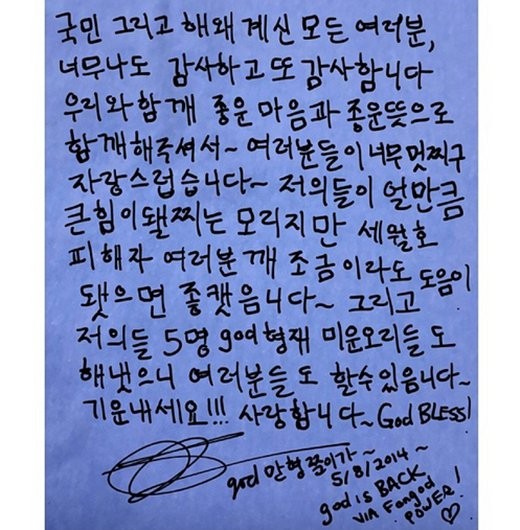 국민 그리고 해왜 계신 모든 여러분,
너무나도 감사하고 또 감사합니다
우리와 함깨 좋운 마음과 좋운뜻으로
함깨해주셔서~ 여러분들이 너무 멋찌구
자랑스럽습니다~ 저의들이 얼만큼
큰힘이 됄찌는 모리지만 세월호
피해자 여러분깨 조금이라도 도음이
됏으면 좋캣음니다~ 그리고
저의들 5명 god형재 미운오리들도
해냇으니 여러분들도 할수있음니다~
기운내세요!!! 사랑합니다~ God BLESS!
god 만형쭌이가~
5/8/2014~
god is BACK
VIA Fangod
POWER!